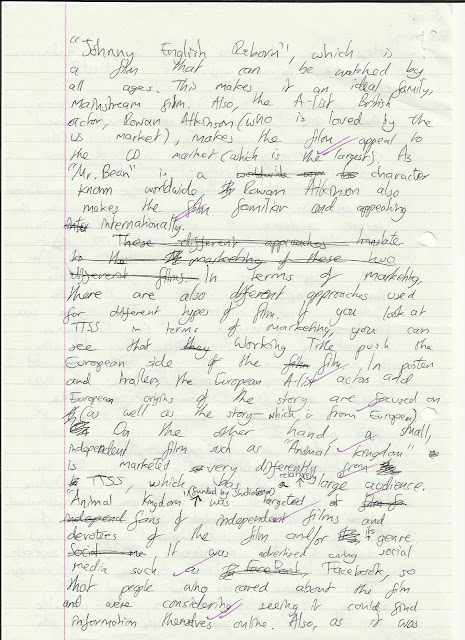 "Johnny English Reborn", which is
a film that can be watched by
all ages. This makes it an ideal family,
mainstream film. Also, the A-list British
actor, Rowan Atkinson (who is loved by the
US market), makes the film appeal to
the CD market (which is the largest). As
"Mr. Bean" is a worldwide character
known worldwide, Rowan Atkinson also
makes the film familiar and appealing
internationally.
These different approaches translate
to the marketing of these two
different films. In terms of marketing,
there are also different approaches used
for different types of film. If you look at
TTSS in terms of marketing, you can
see that they Working Title push the
European side of the film film. In posters
and trailers, the European A-list actors and
European origins of the story are focused on
(as well as the story - which is from European)
On the other hand, a small,
independent film such as "Animal Kingdom"
is marketed very differently from
TTSS, which has a relatively large audience.
"Animal Kingdom" (funded by StudioCanal) was targeted at film
independ fans of independent films and
devotees of the film and/or its genre
social me, It was advertised using social
media such as facebook, Facebook, so
that people who cared about the film
and were considering seeing it could find
information themselves online. Also, as it was